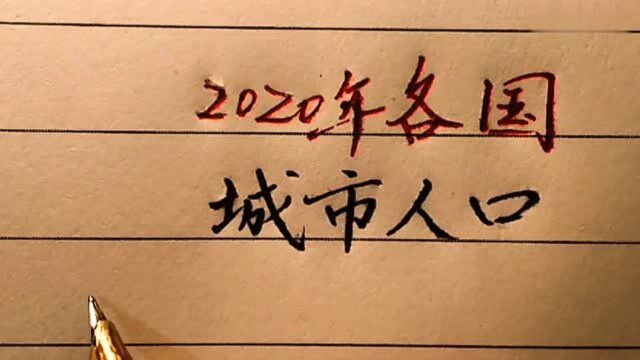 2020年各国
城市人口